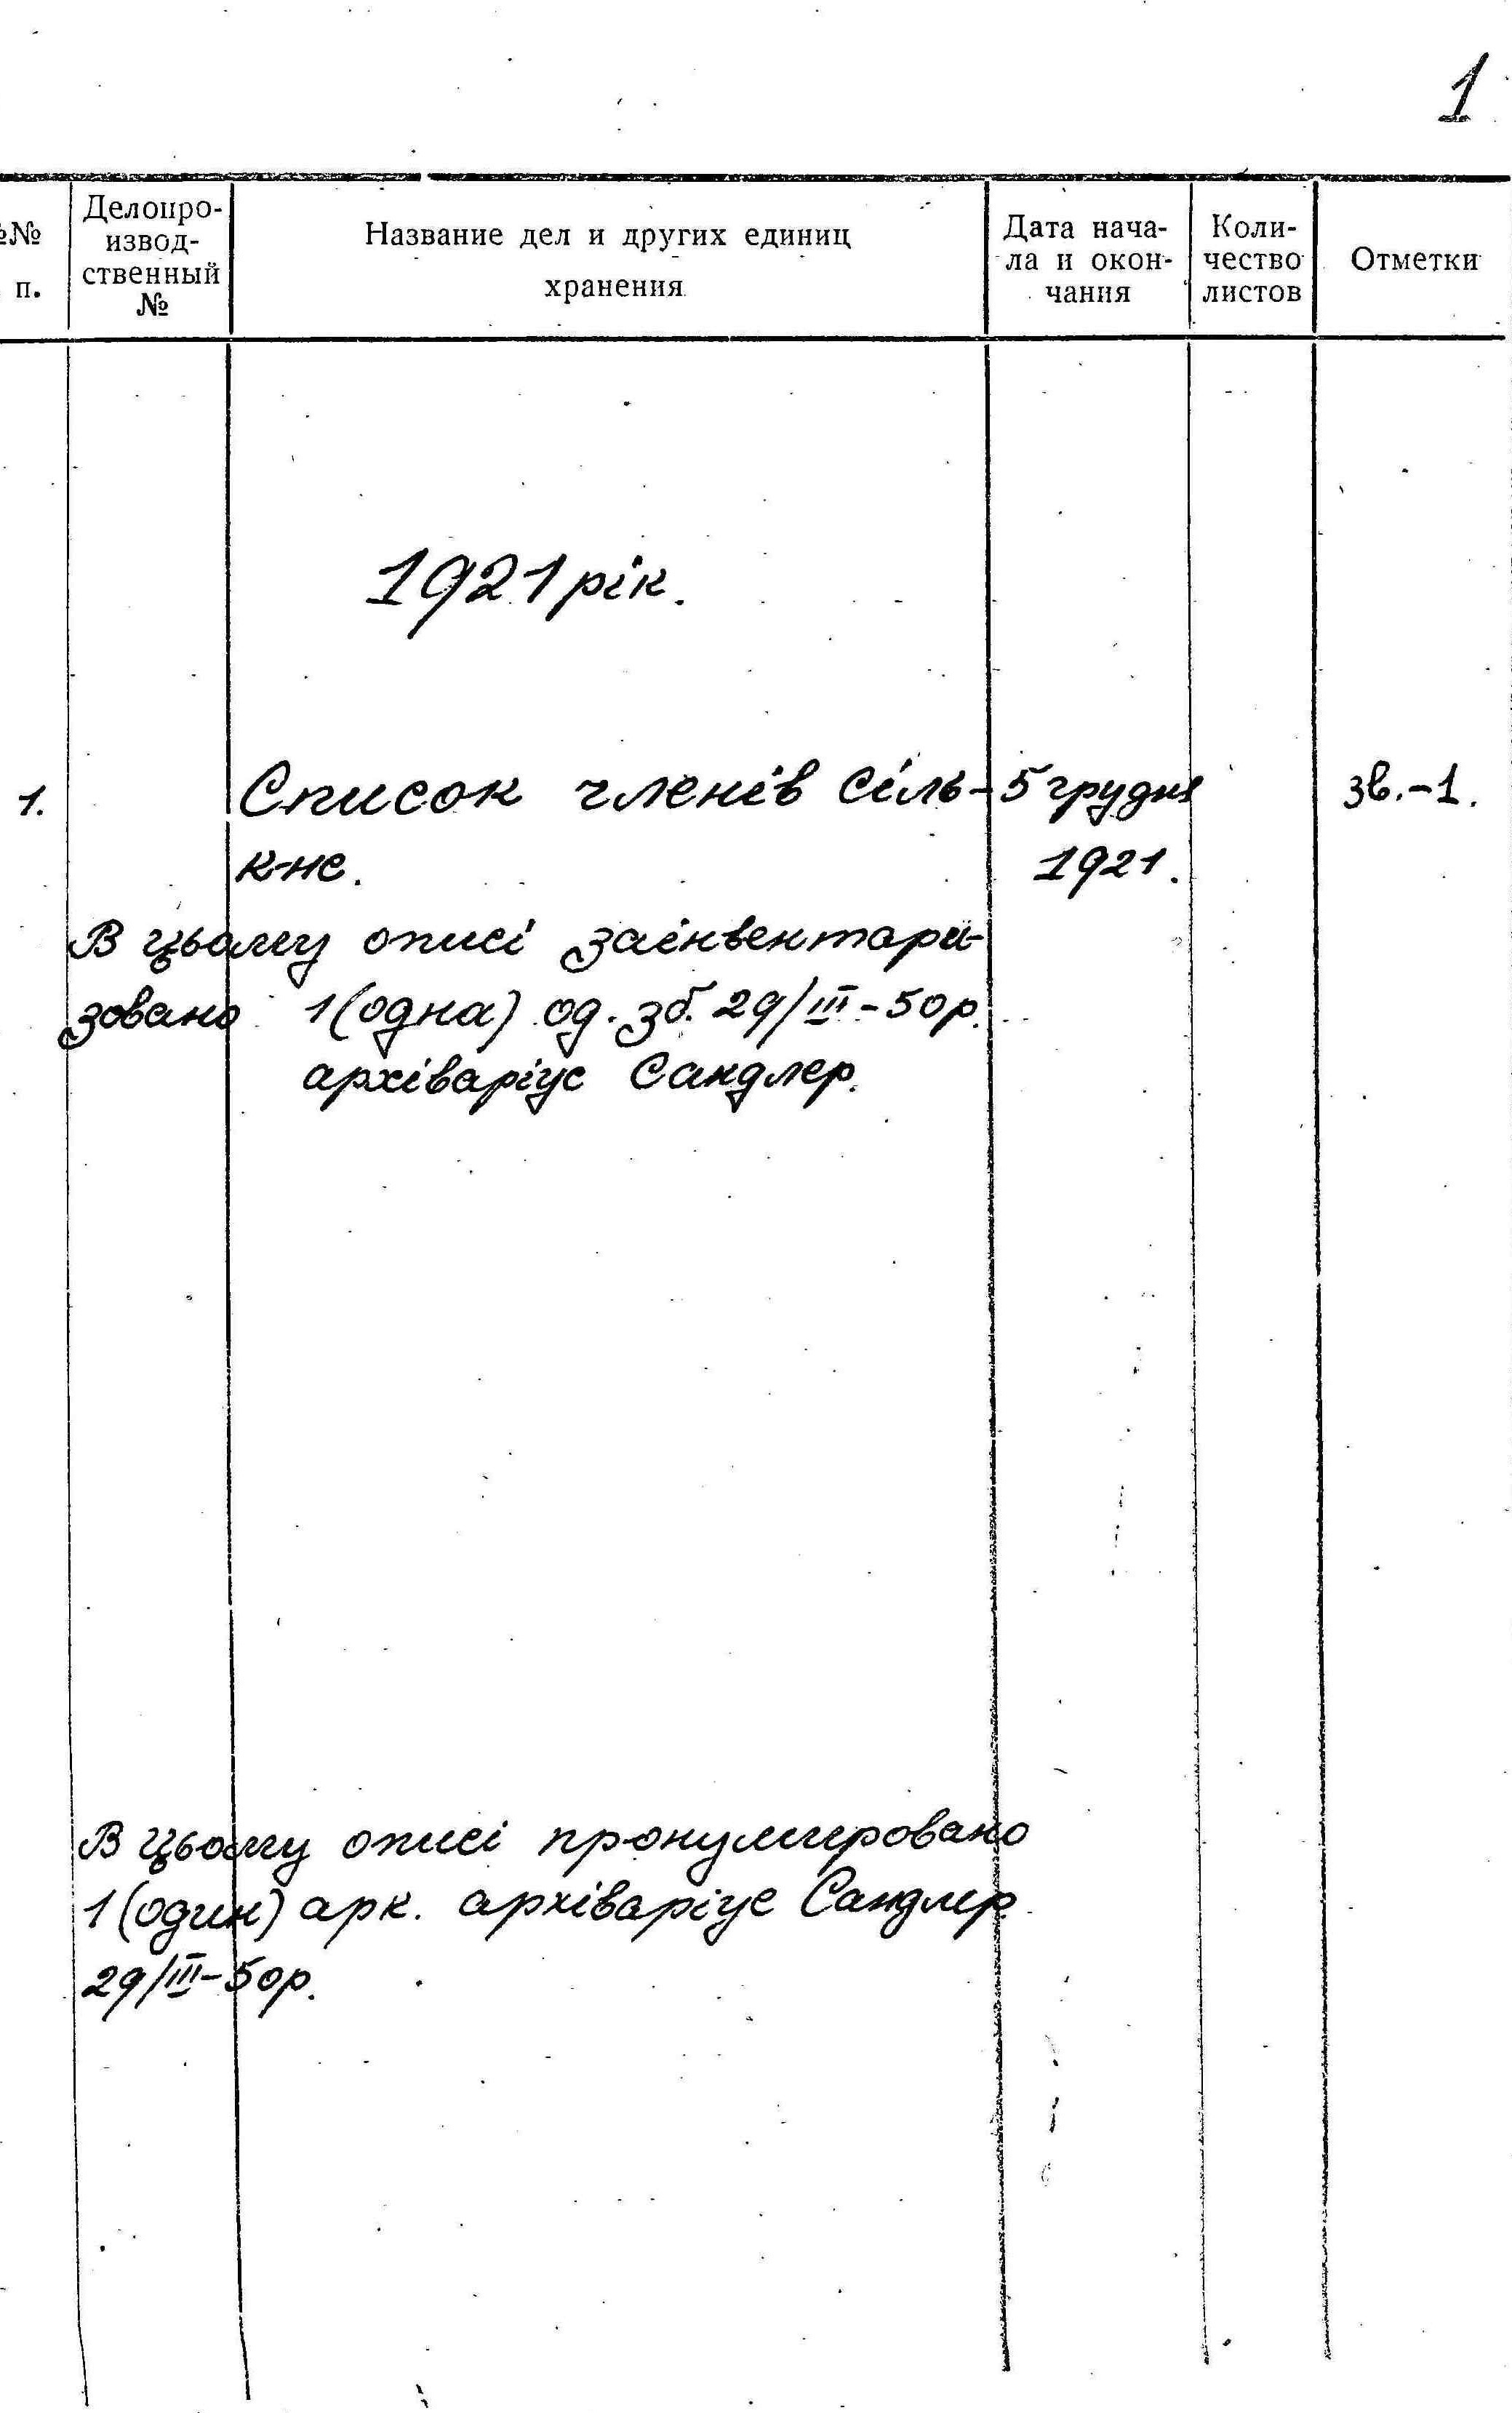 1
№№ п.
Делопро-
извод-
ственный
№
Название дел и других единиц
хранения
Дата нача-
ла и окон-
чания
Коли-
чество
листов
Отметки
1921 рік.
1. Список членів сіль- 5 грудня зв.-1.
кнс. 1921.
В цьому описі заінвентари-
зовано 1 (одна) од. зб. 29/III-50р.
архіваріус Сандлер.
В цьому описі пронумеровано
1 (один) арк. архіваріус Сандлер
29/III-50р.